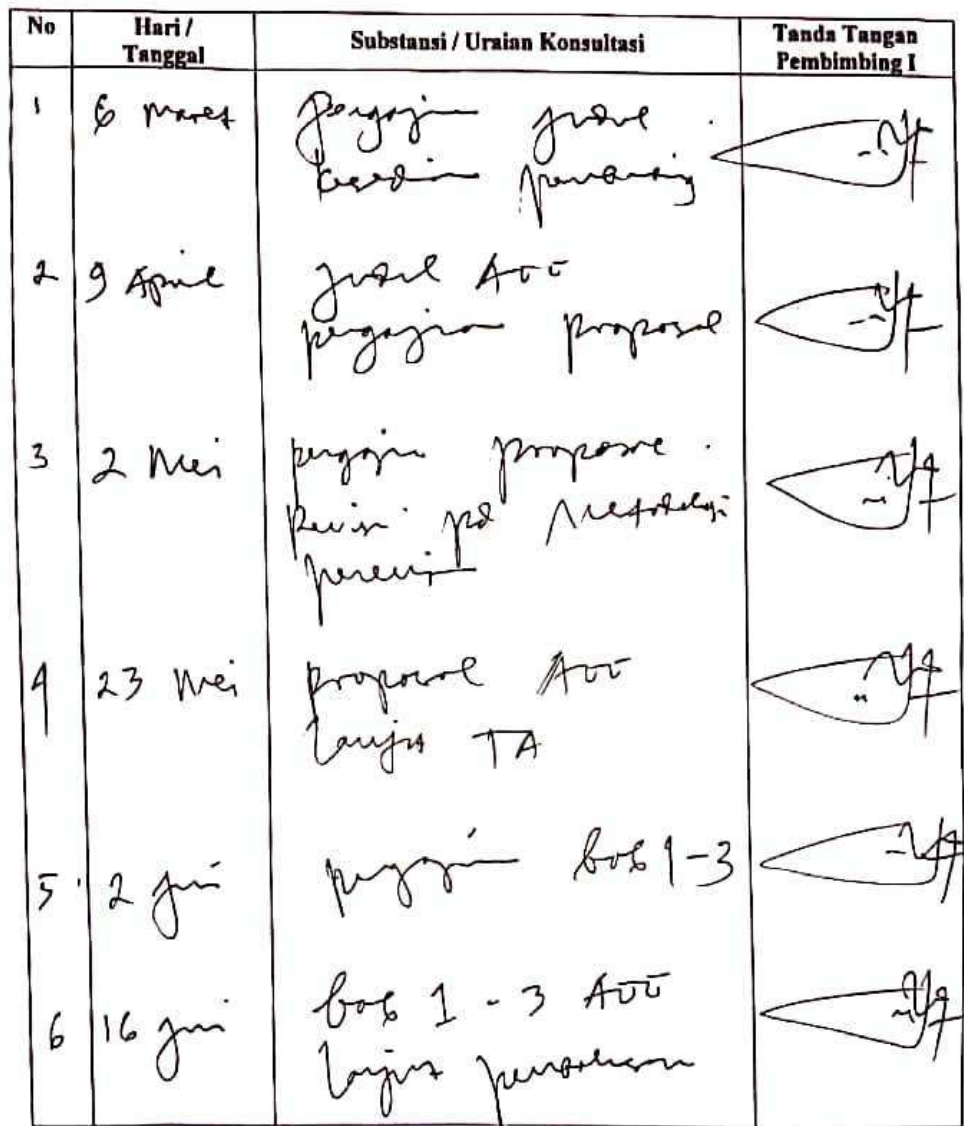 No Hari / Tanggal Substansi / Uraian Konsultasi Tanda Tangan Pembimbing I
1 6 Maret pengajuan judul.
kesediaan pembimbing
2 9 April judul ACC
pengajuan proposal
3 2 Mei pengajuan proposal.
Revisi pd Metodologi
4 23 Mei proposal ACC
lanjut TA
5 2 Juni pengajuan bab 1-3
6 16 Juni bab 1 - 3 ACC
lanjut